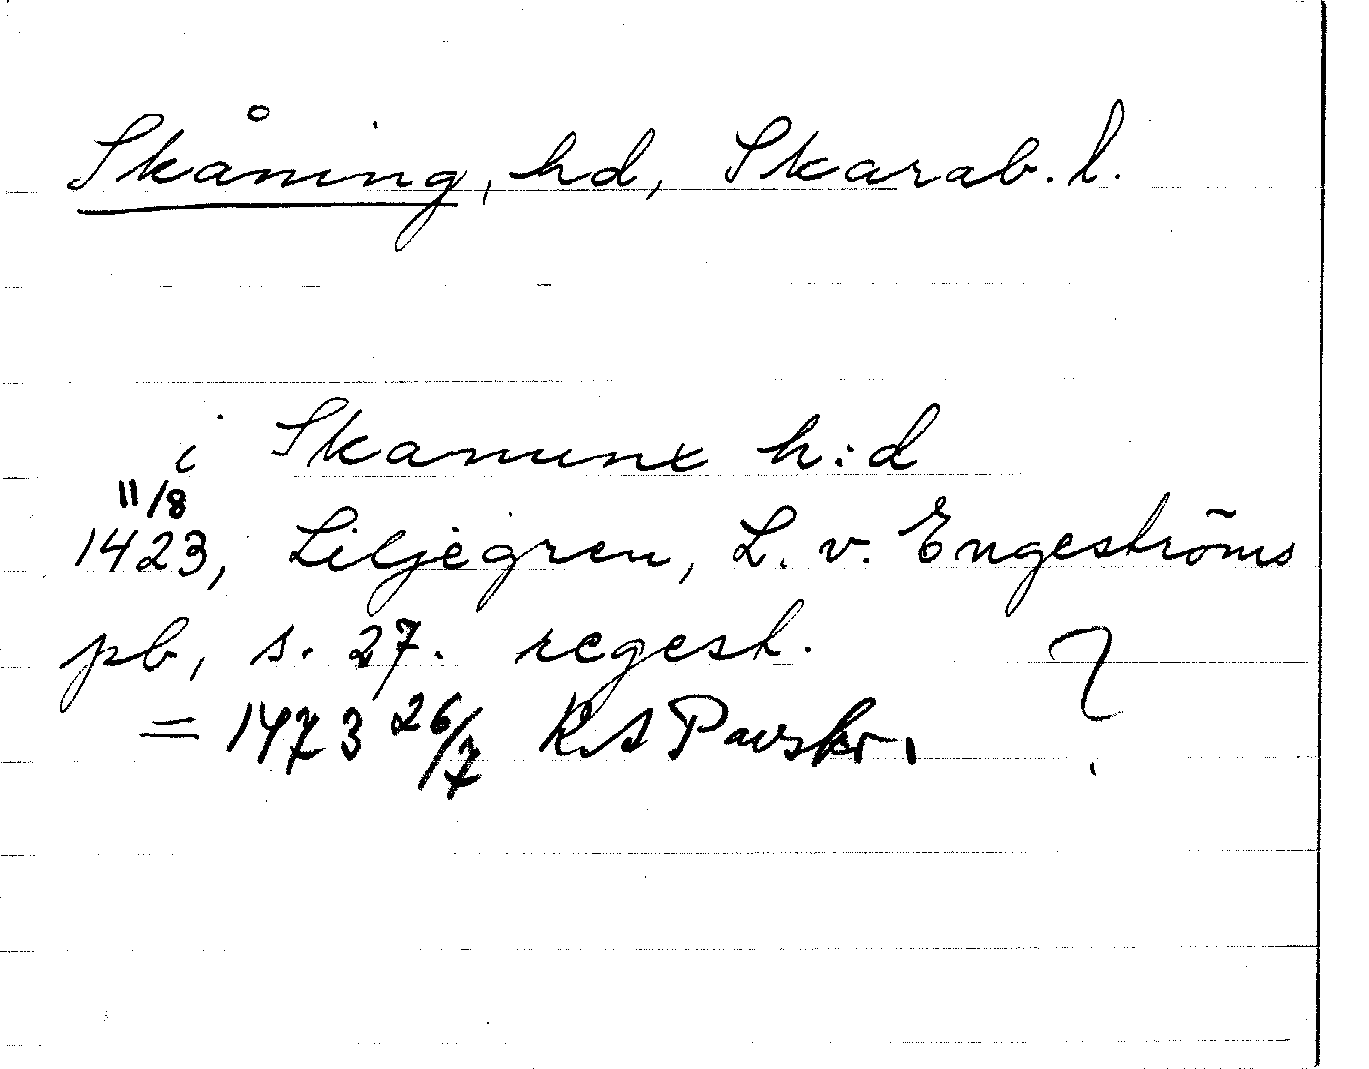 Skåning, hd, Skarab. l.
i Skamunx h:d
11/8
1423, Liljegren, L. v. Engeströms
pb, s. 27. regest. ?
= 1473 26/7 RA Pavskr.